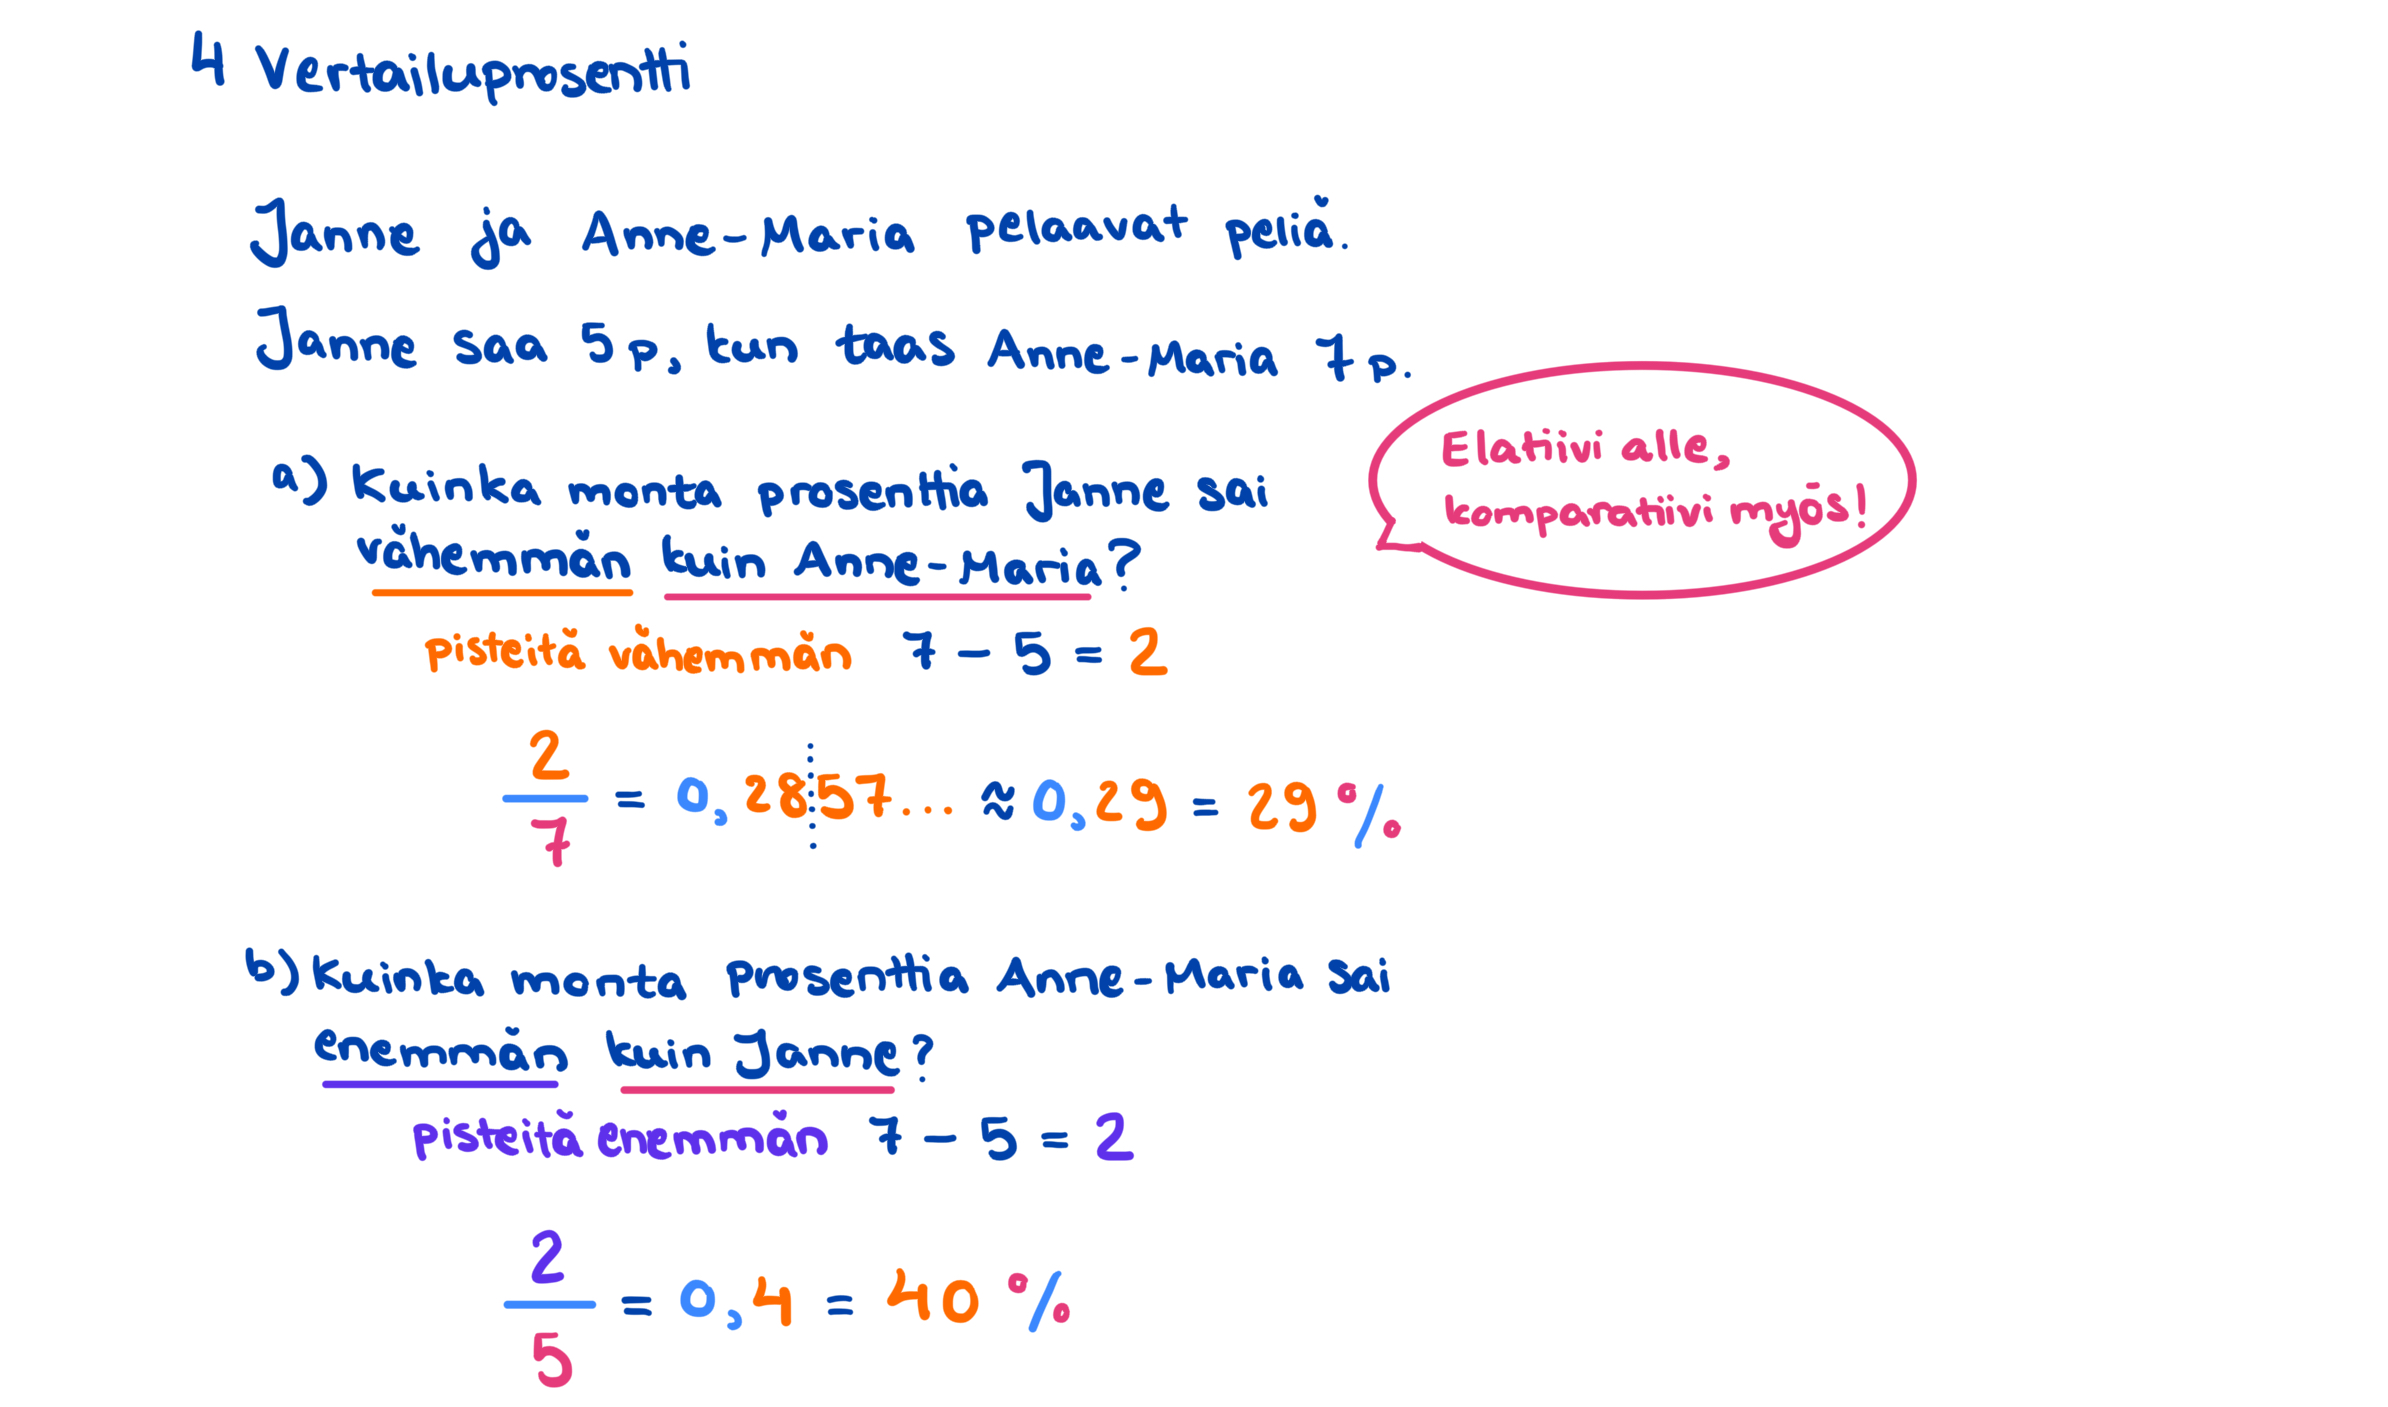 4 Vertailuprosentti
Janne ja Anne-Maria pelaavat peliä.
Janne saa 5 p, kun taas Anne-Maria 7 p.
Elatiivi alle,
komparatiivi myös!
a) Kuinka monta prosenttia Janne sai
vähemmän kuin Anne-Maria?
pisteitä vähemmän 7 - 5 = 2
2/7 = 0,2857... ≈ 0,29 = 29 %
b) Kuinka monta prosenttia Anne-Maria sai
enemmän kuin Janne?
pisteitä enemmän 7 - 5 = 2
2/5 = 0,4 = 40 %